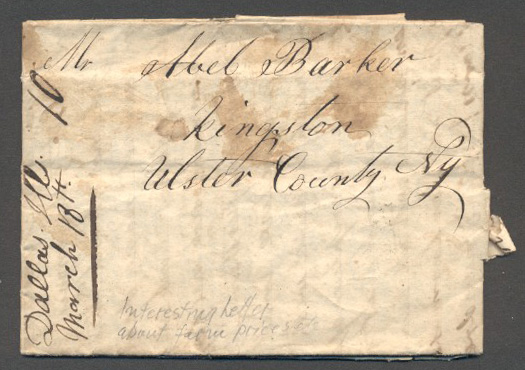 Mr Abel Barker
Kingston
Ulster County Ny
Dallas Ills. 10
March 18th
Interesting letter
about farm prices